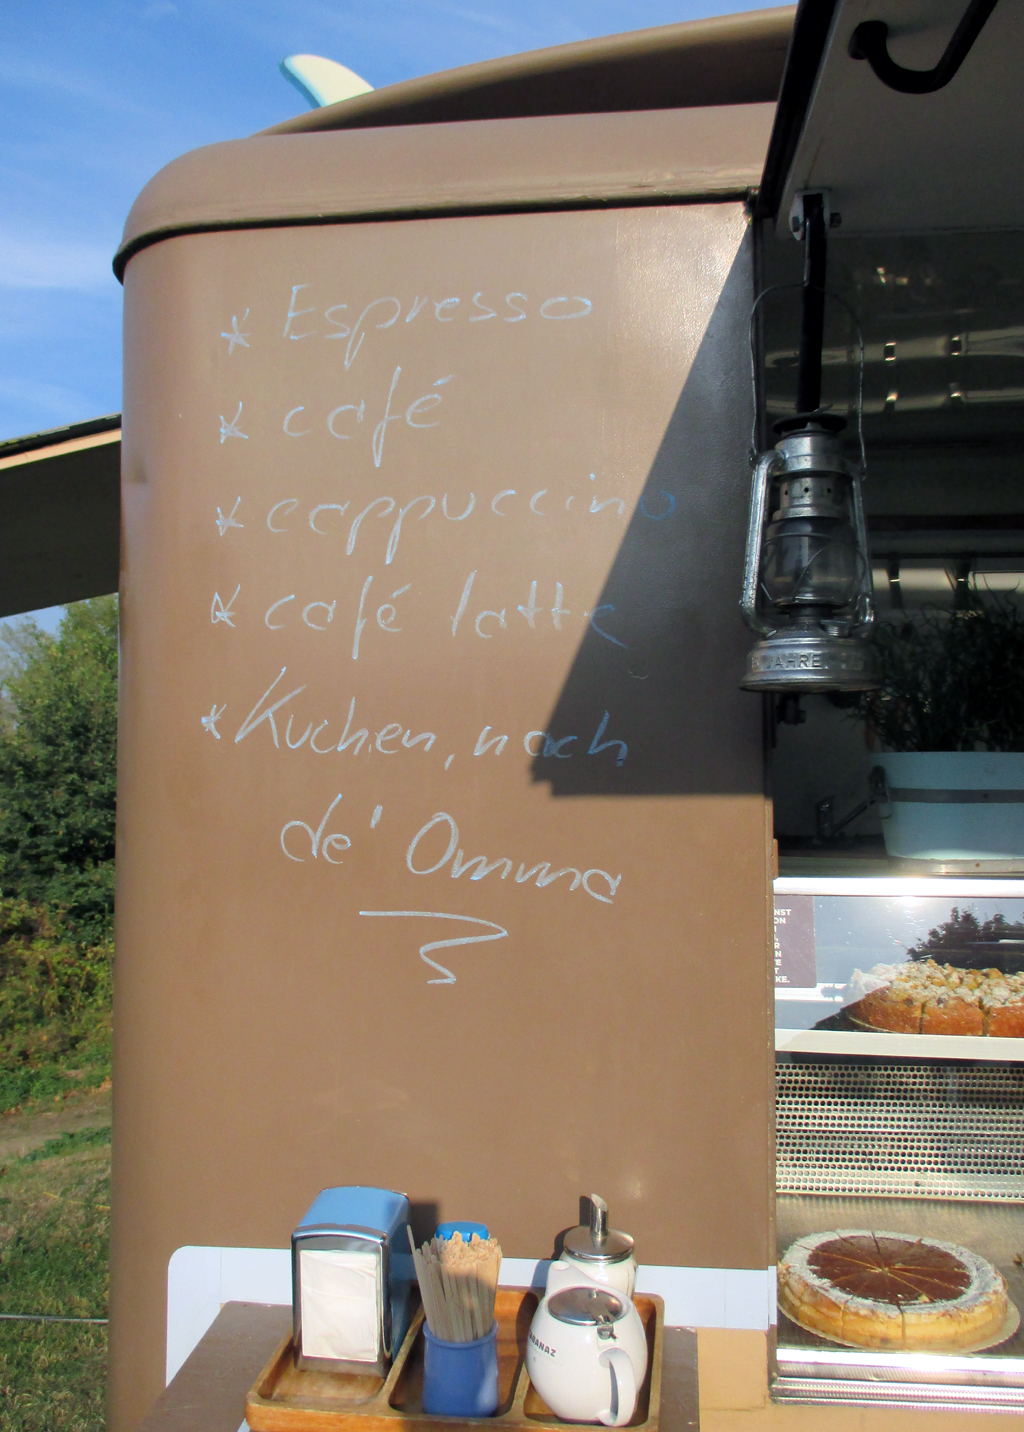 * Espresso
* café
* cappuccino
* café latte
* Kuchen, nach
de' Omma